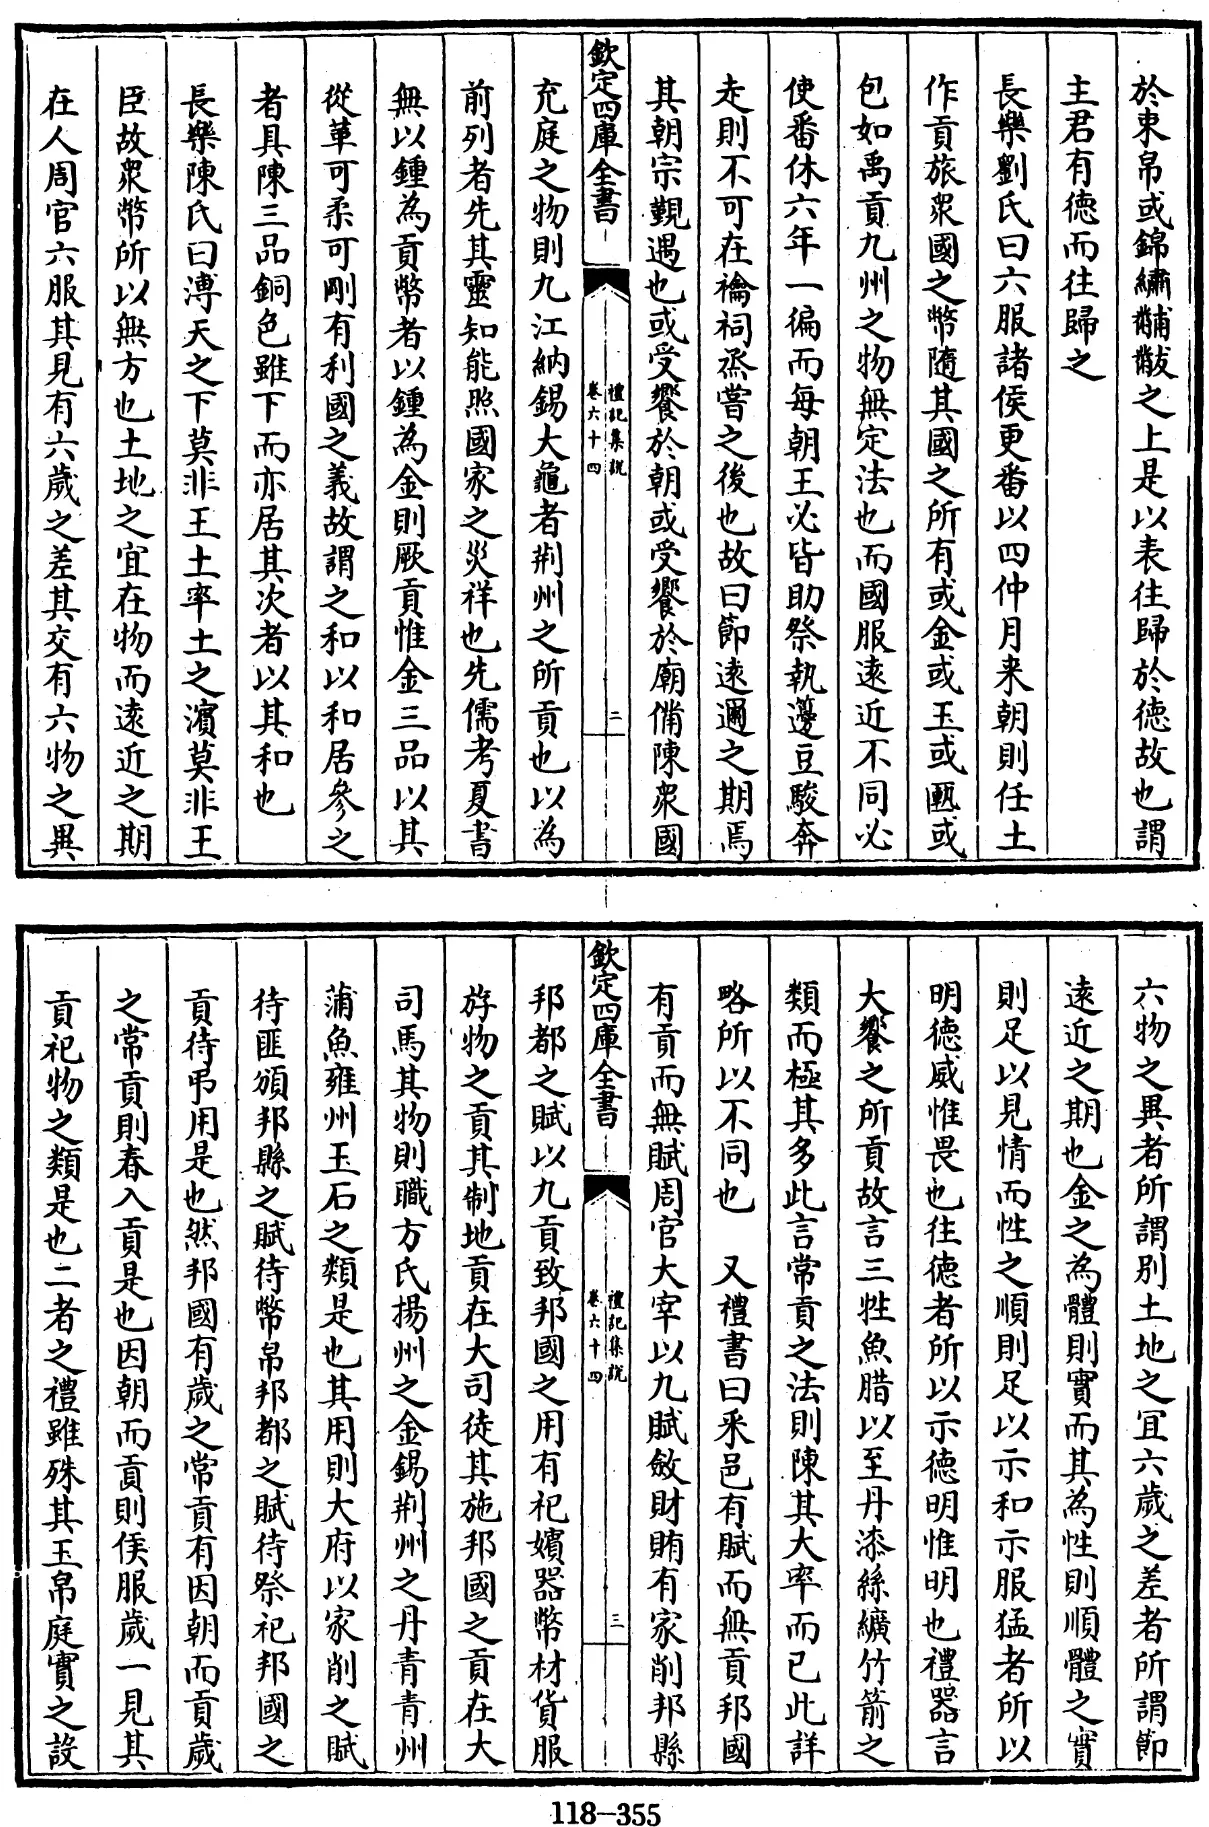 於束帛或錦繡黼黻之上是以表往歸於徳故也謂
主君有徳而往歸之
長樂劉氏曰六服諸侯更番以四仲月来朝則任土
作貢旅衆國之幣隨其國之所有或金或玉或匭或
包如禹貢九州之物無定法也而國服逺近不同必
使番休六年一徧而每朝王必皆助祭執籩豆駿奔
走則不可在禴祠烝嘗之後也故曰節逺邇之期焉
其朝宗覲遇也或受饗於朝或受饗於廟備陳衆國
欽定四庫全書
禮記集說
卷六十四
二
充庭之物則九江納錫大龜者荆州之所貢也以為
前列者先其靈知能照國家之災祥也先儒考夏書
無以鍾為貢幣者以鍾為金則厥貢惟金三品以其
從革可柔可剛有利國之義故謂之和以和居參之
者具陳三品銅色雖下而亦居其次者以其和也
長樂陳氏曰溥天之下莫非王土率土之濱莫非王
臣故衆幣所以無方也土地之宜在物而逺近之期
在人周官六服其見有六歲之差其交有六物之異
六物之異者所謂别土地之宜六歲之差者所謂節
逺近之期也金之為體則實而其為性則順體之實
則足以見情而性之順則足以示和示服猛者所以
明徳威惟畏也往徳者所以示徳明惟明也禮器言
大饗之所貢故言三牲魚腊以至丹漆絲纊竹箭之
類而極其多此言常貢之法則陳其大率而已此詳
略所以不同也　又禮書曰釆邑有賦而無貢邦國
有貢而無賦周官大宰以九賦斂財賄有家削邦縣
欽定四庫全書
禮記集說
卷六十四
三
邦都之賦以九貢致邦國之用有祀嬪器幣材貨服
斿物之貢其制地貢在大司徒其施邦國之貢在大
司馬其物則職方氏揚州之金錫荆州之丹青青州
蒲魚雍州玉石之類是也其用則大府以家削之賦
待匪頒邦縣之賦待幣帛邦都之賦待祭祀邦國之
貢待弔用是也然邦國有歲之常貢有因朝而貢歲
之常貢則春入貢是也因朝而貢則侯服歲一見其
貢祀物之類是也二者之禮雖殊其玉帛庭實之設
118-355